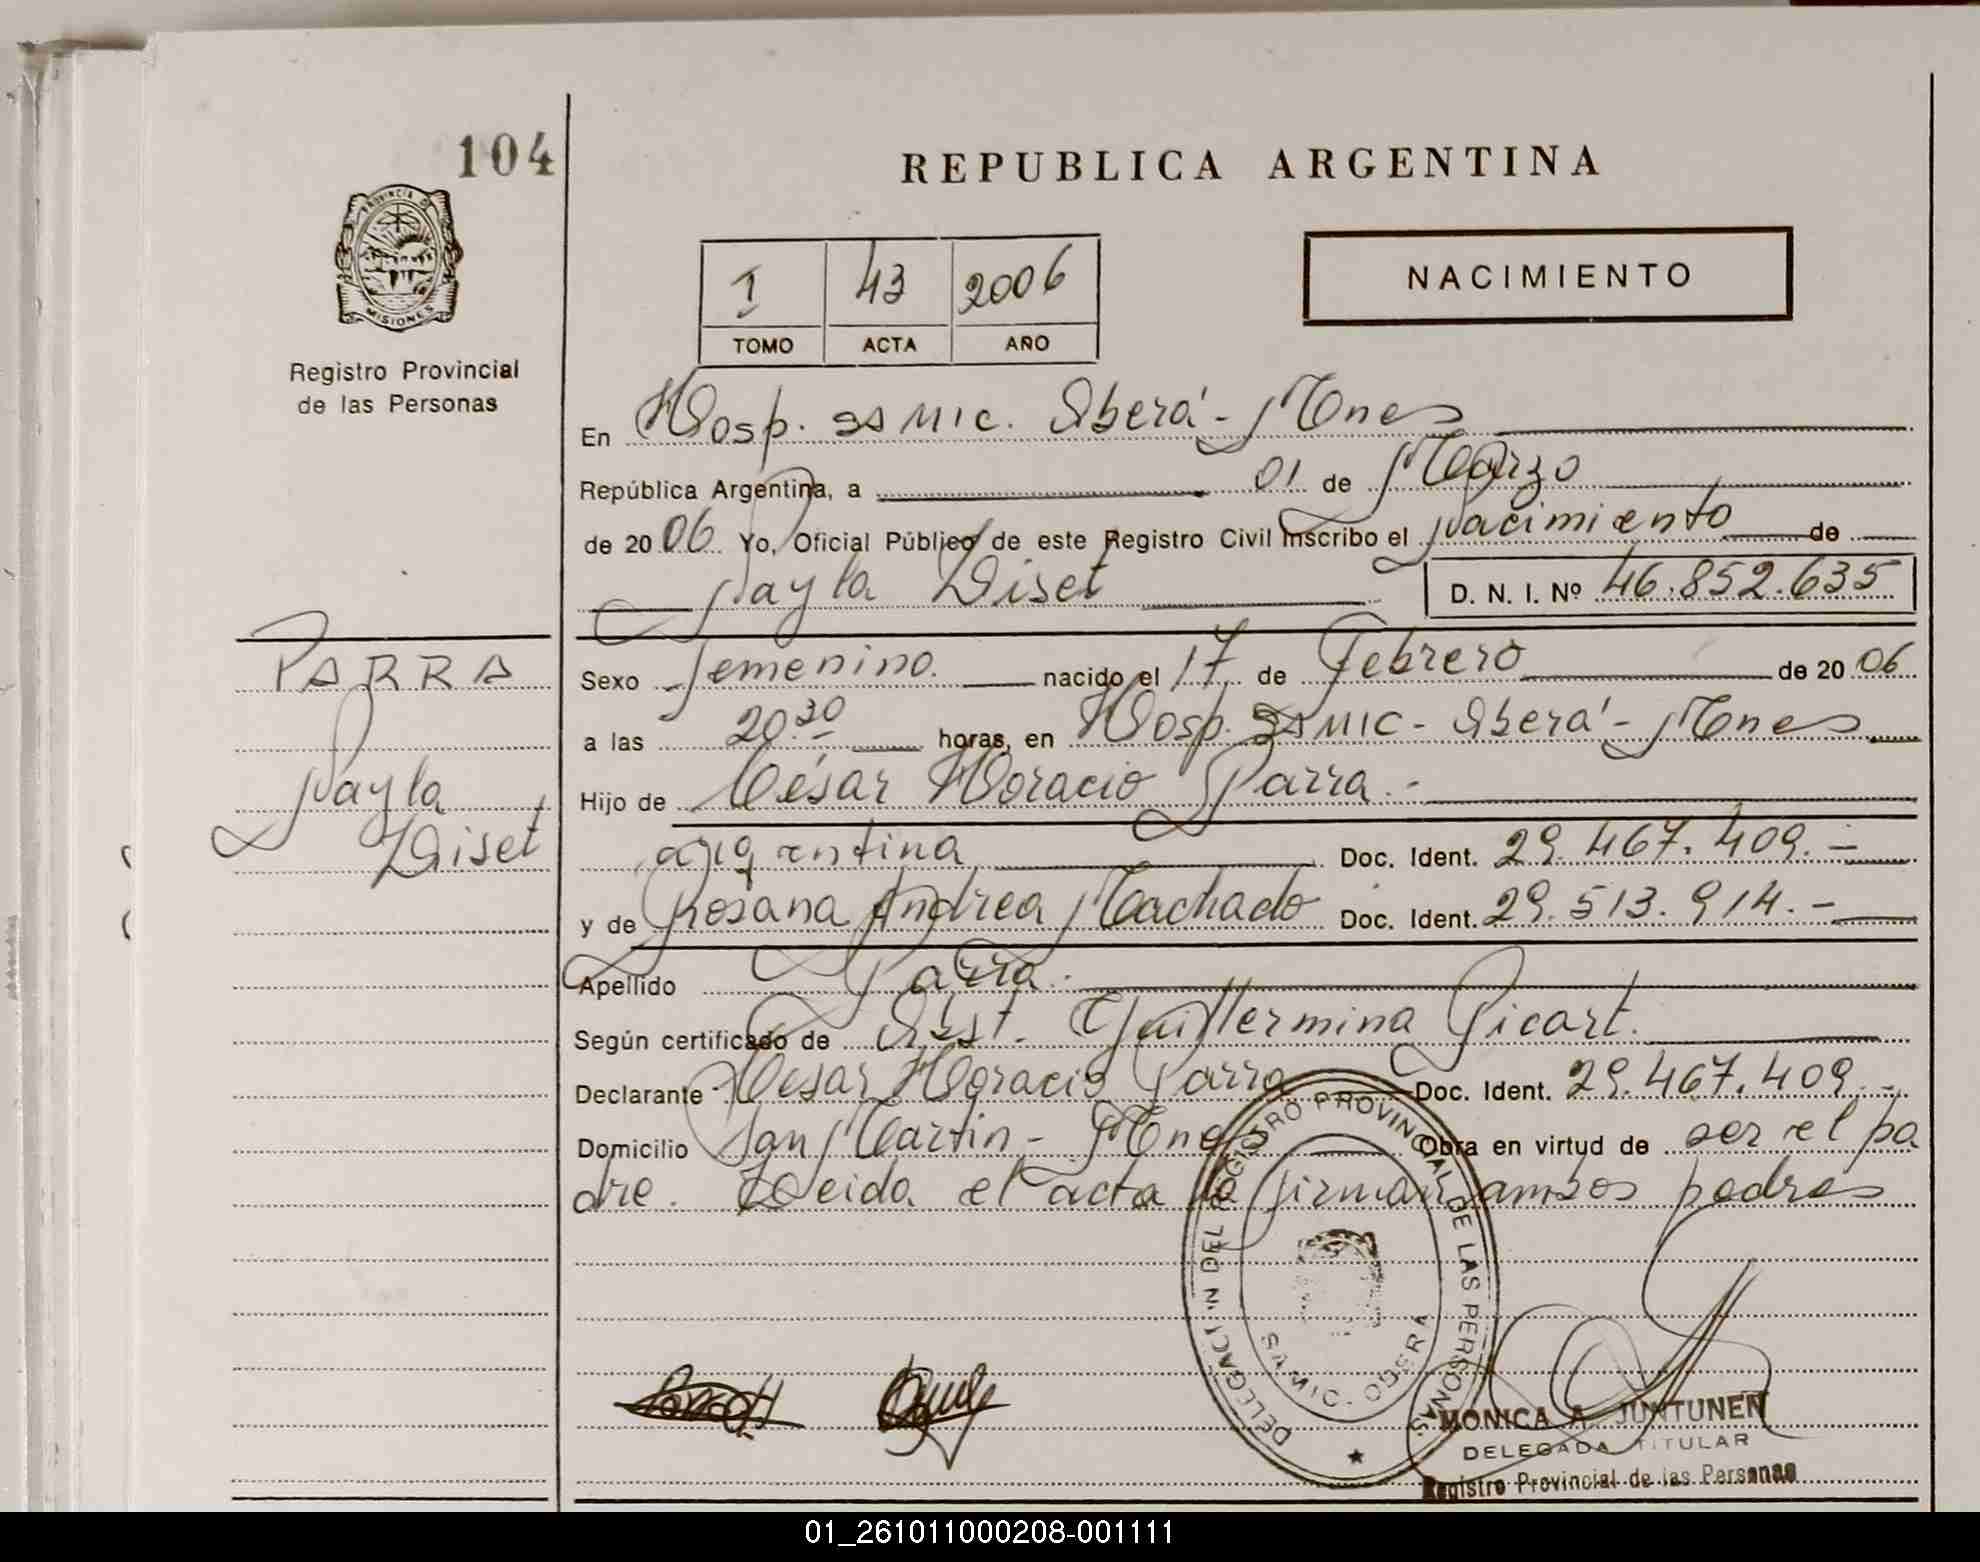 104
PROVINCIA DE
MISIONES
Registro Provincial
de las Personas
REPUBLICA ARGENTINA
I 43 2006
TOMO ACTA AÑO
NACIMIENTO
En Hosp. SAMIC. Oberá - Mnes
República Argentina, a 01 de Marzo
de 2006 Yo, Oficial Público de este Registro Civil inscribo el nacimiento de
Nayla Liset D. N. I. Nº 46.852.635
PARRA
Nayla
Liset
Sexo femenino. nacido el 17 de Febrero de 2006
a las 20.30 horas, en Hosp. SAMIC - Oberá - Mnes
Hijo de César Horacio Parra.-
argentina Doc. Ident. 29.467.409.-
y de Rosana Andrea Machado Doc. Ident. 29.513.914.-
Apellido Parra.
Según certificado de Obst. Guillermina Picart.
Declarante César Horacio Parra Doc. Ident. 29.467.409.-
Domicilio San Martin - Mnes Obra en virtud de ser el pa
dre. Leida el acta la firman ambos padres
DELEGACI N DEL REGISTRO PROVINCIAL DE LAS PERSONAS
SAMIC - OBERA
MONICA A. JUNTUNEN
DELEGADA TITULAR
Registro Provincial de las Personas
01_261011000208-001111